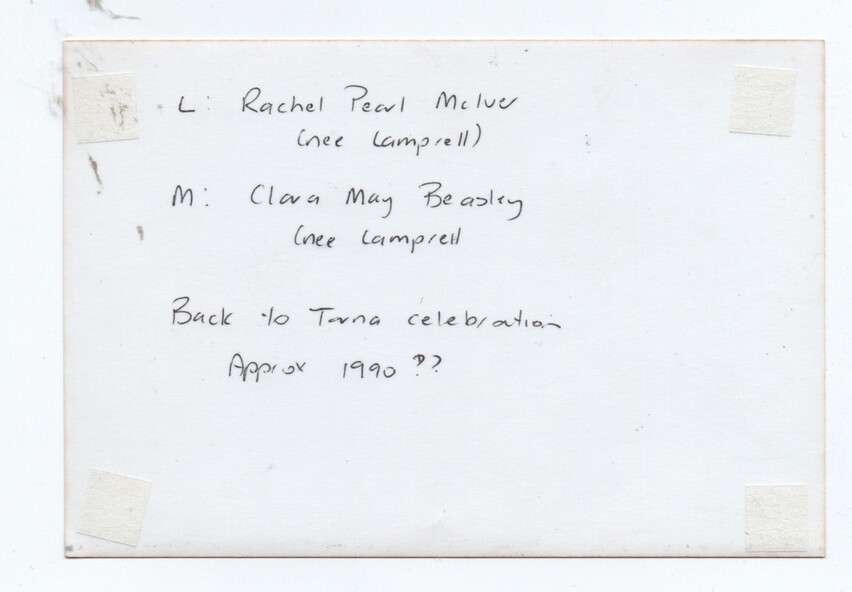 L: Rachel Pearl McIver
(nee Lamprell)
M: Clara May Beasley
(nee Lamprell
Back to Tarna celebration
Approx 1990 ??